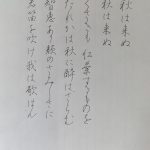 秋は来ぬ
秋は来ぬ
くさきも紅葉するものを
たれかは秋に酔はざらむ
智恵あり顔のさみしさに
君笛を吹け我は歌はん